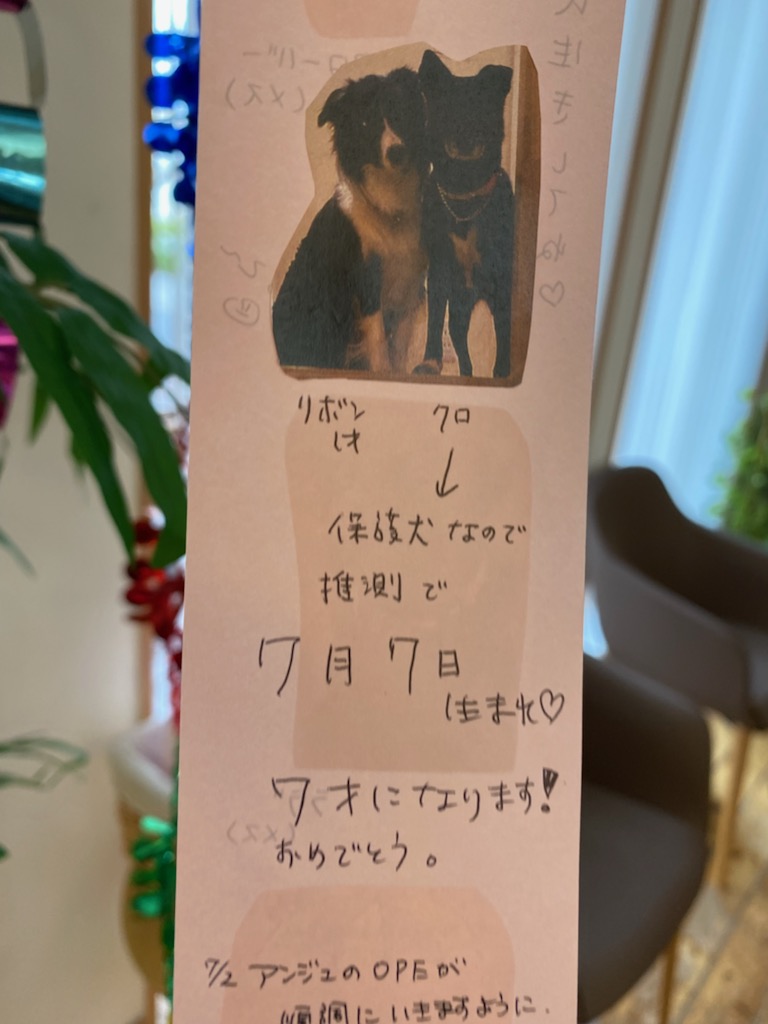 リボン クロ
1才 ↓
保護犬なので
推測で
7月7日
生まれ♡
7才になります!
おめでとう。
7/2 アンジュのOPEが
順調にいきますように.